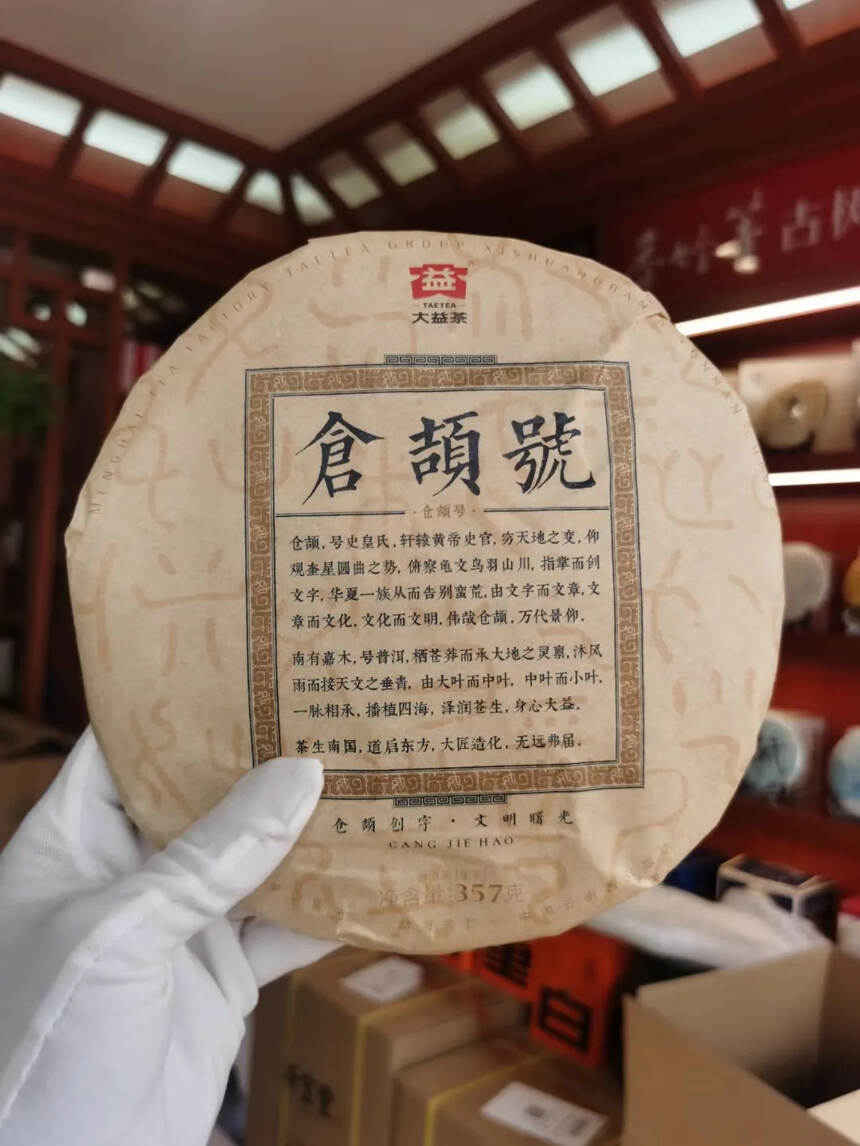 MENGHAI TEA FACTORY TAETEA GROUP XISHUANGBANNA YUNNAN
益
TAETEA
大益茶
倉頡號
·仓颉号·
仓颉,号史皇氏,轩辕黄帝史官,穷天地之变,仰
观奎星圆曲之势,俯察龟文鸟羽山川,指掌而创
文字,华夏一族从而告别蛮荒,由文字而文章,文
章而文化,文化而文明,伟哉仓颉,万代景仰。
南有嘉木,号普洱,栖苍莽而承大地之灵禀,沐风
雨而接天文之垂青,由大叶而中叶,中叶而小叶,
一脉相承,播植四海,泽润苍生,身心大益。
茶生南国,道启东方,大匠造化,无远弗届。
仓颉创字·文明曙光
CANG JIE HAO
净含量:357克
古树
白